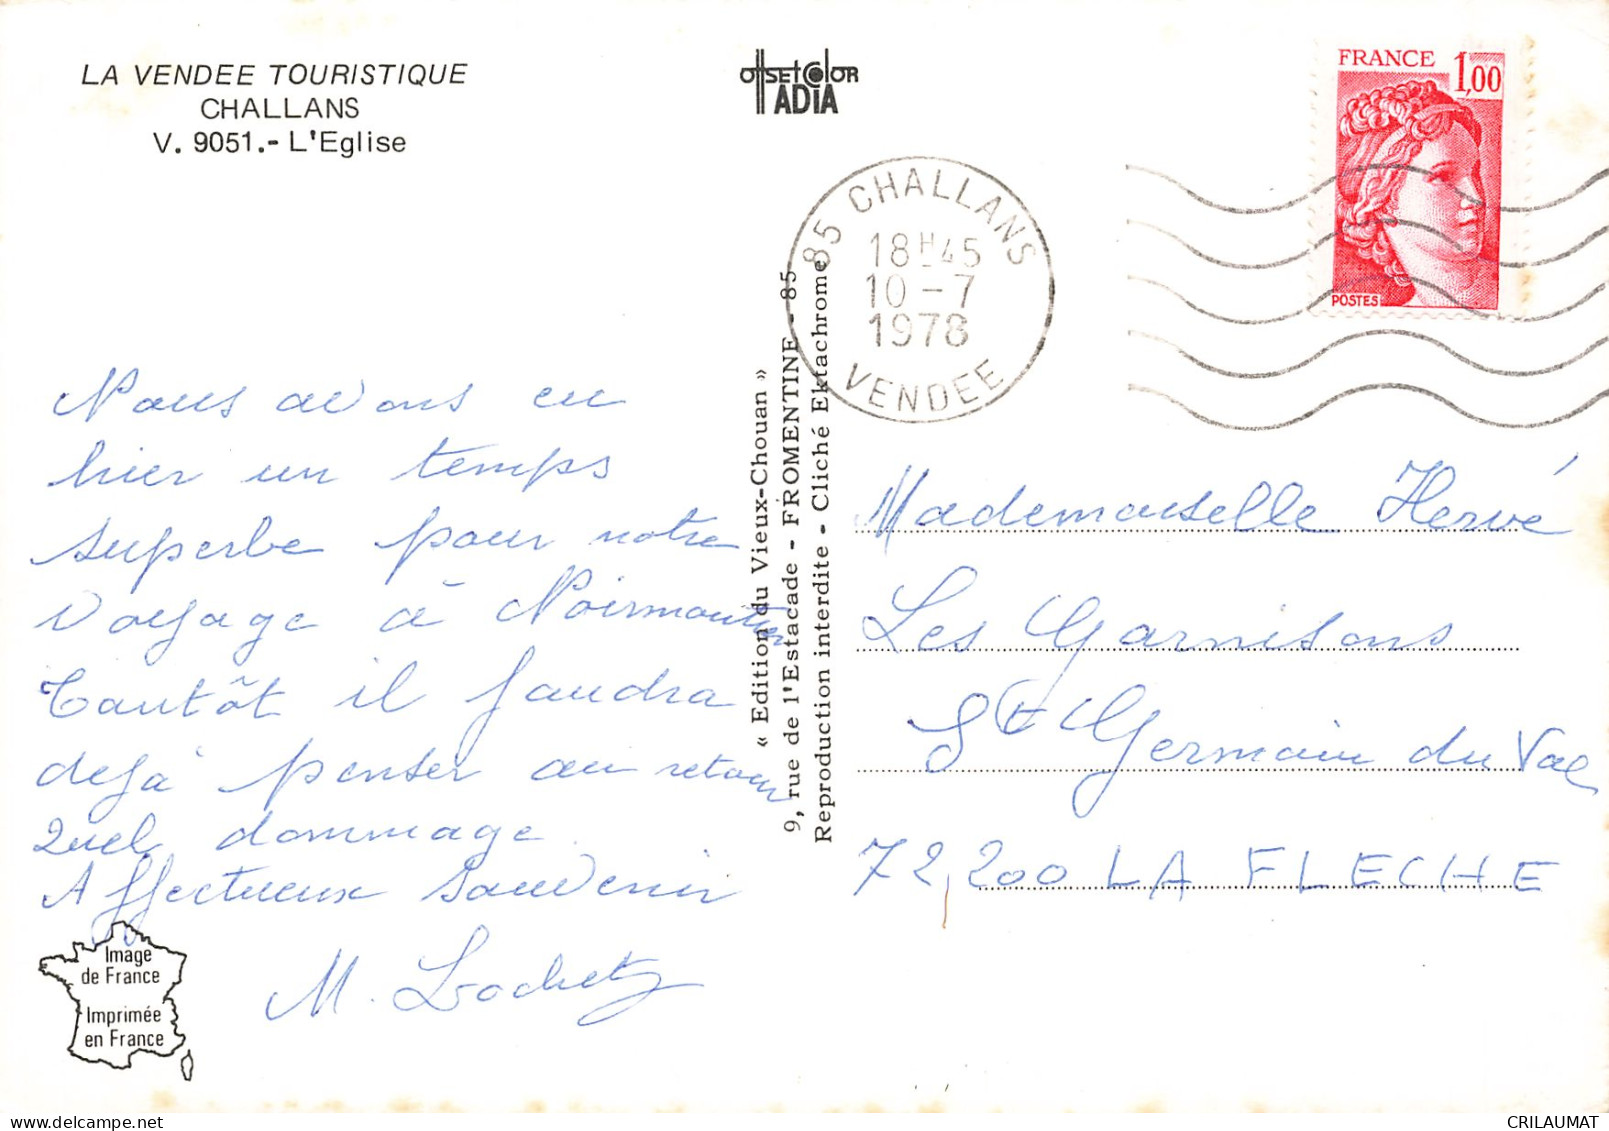 LA VENDEE TOURISTIQUE
CHALLANS
V. 9051.- L'Eglise
Offset Color
ADIA
FRANCE 1,00
POSTES
85 CHALLANS
18H45
10-7
1978
VENDEE
Nous avons eu
hier un temps
superbe pour notre
voyage à Noirmoutier
Tantôt il faudra
dejà penser au retour
Quel dommage
Affectueux souvenir
M.
« Edition du Vieux-Chouan »
9, rue de l'Estacade - FROMENTINE - 85
Reproduction interdite - Cliché Ektachrome
Mademoiselle Hervé
Les Garnisons
St Germain du Val
72200 LA FLECHE
Image
de France
Imprimée
en France
CRILAUMAT